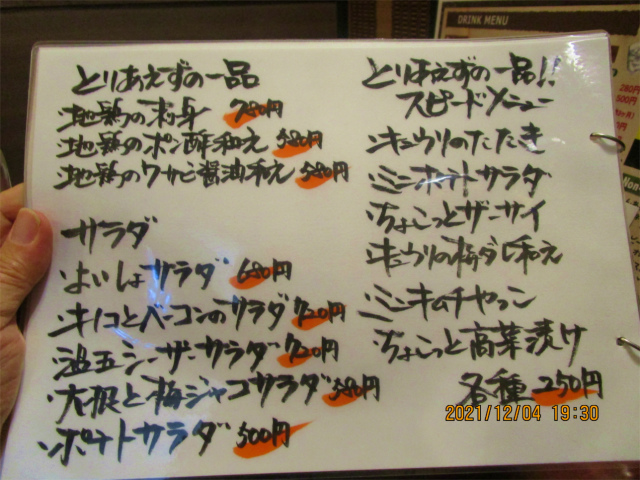 とりあえずの一品
・地鶏の刺身 780円
・地鶏のポン酢和え 580円
・地鶏のワサビ醤油和え 580円
サラダ
・よいしょサラダ 680円
・キノコとベーコンのサラダ 720円
・温玉シーザーサラダ 720円
・大根と梅ジャコサラダ 580円
・ポテトサラダ 500円
とりあえずの一品!!
スピードメニュー
・キュウリのたたき
・ミニポテトサラダ
・ちょこっとザーサイ
・キュウリの梅ダレ和え
・ミニキムチやっこ
・ちょこっと高菜漬け
各種 250円
DRINK MENU
280円
500円
2021/12/04 19:30